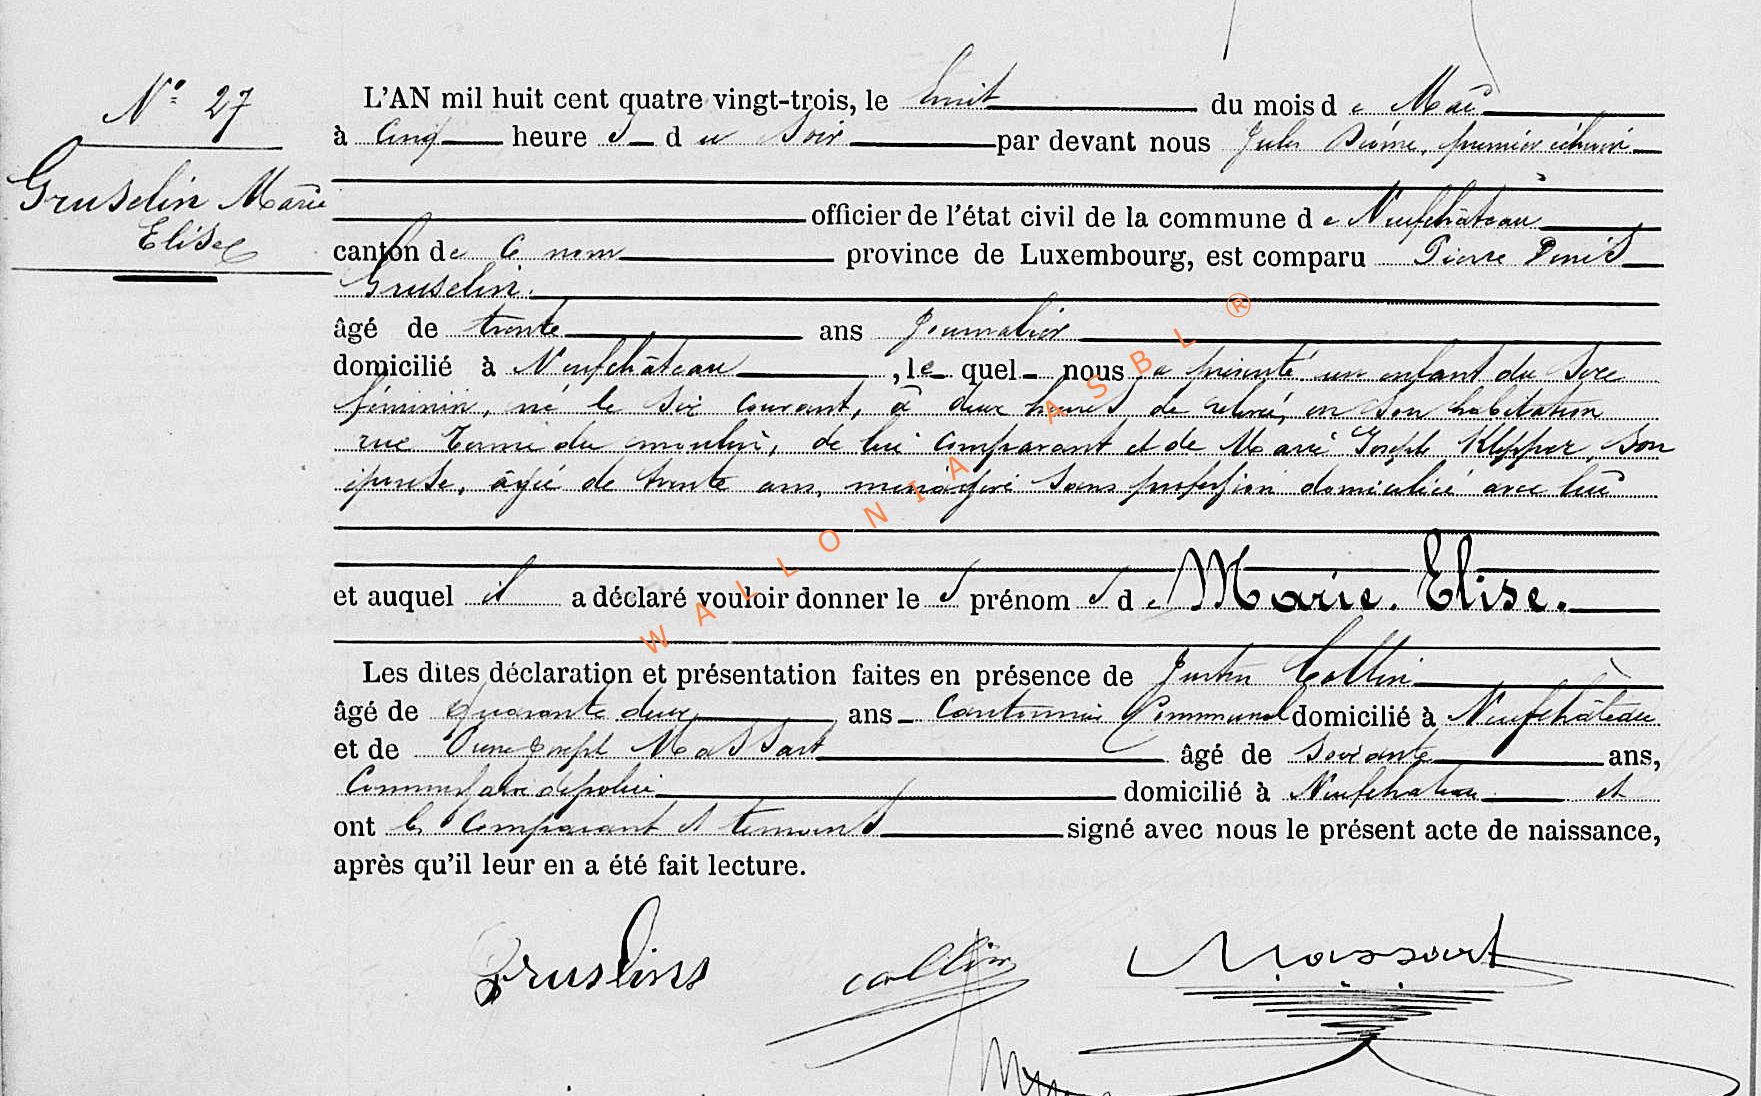 N° 27
Gruselin Marie
Elise
L'AN mil huit cent quatre vingt-trois, le huit du mois de Mai
à cinq heures du soir par devant nous Jules premier échevin
officier de l'état civil de la commune de Neufchâteau
canton de ce nom province de Luxembourg, est comparu Pierre Denis
Gruselin.
âgé de trente ans journalier
domicilié à Neufchâteau, lequel nous a présenté un enfant du sexe
féminin, né le six courant, à deux heures de relevée, en son habitation
rue du moulin, de lui comparant et de Marie Joseph Klepper, son
épouse, âgée de trente ans, ménagère sans profession domiciliée avec lui
et auquel il a déclaré vouloir donner les prénoms de Marie. Elise.
Les dites déclaration et présentation faites en présence de Justin Collin
âgé de quarante deux ans cantonnier communal domicilié à Neufchâteau
et de Joseph Massart âgé de soixante ans,
Commissaire de police domicilié à Neufchateau et
ont les comparant et témoins signé avec nous le présent acte de naissance,
après qu'il leur en a été fait lecture.
Gruslins collin Massart
WALLONIA ASBL ®